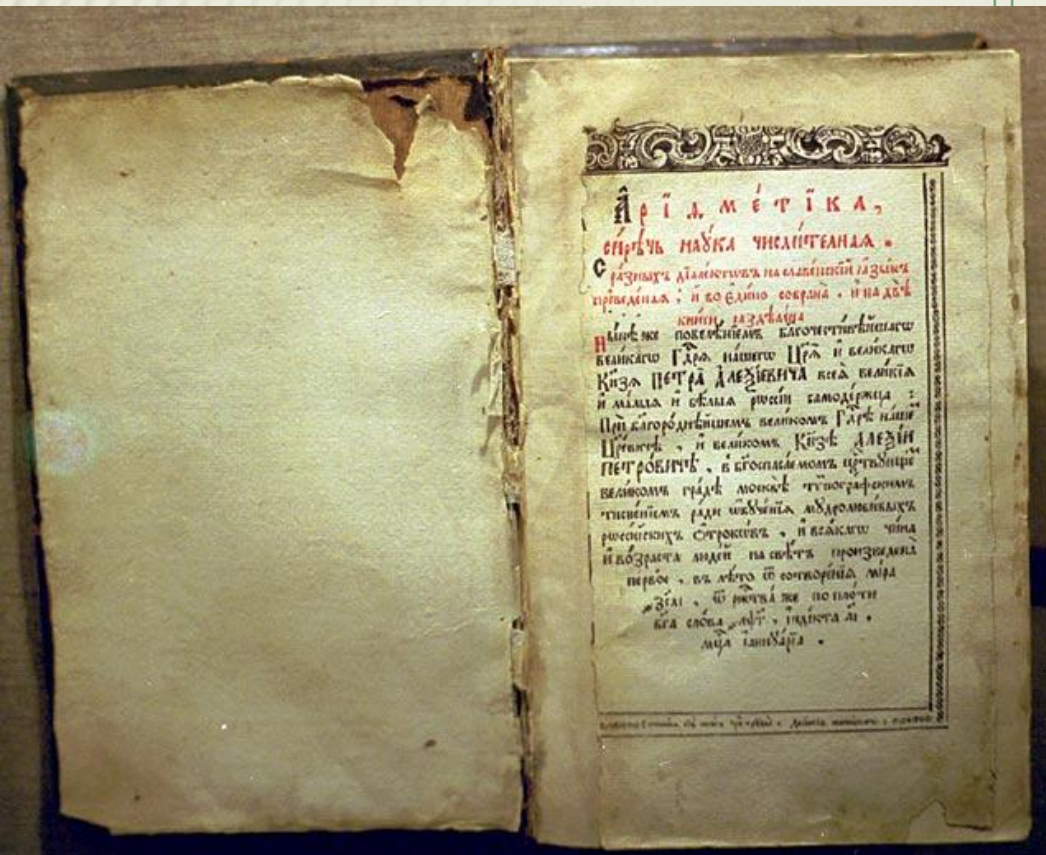 А҆ріѳме́тїка,
си́рѣчь наꙋ́ка числи́телная.
С ра́зныхъ дїале́ктѡвъ на славе́нскїй ꙗ҆зы́къ
преведе́ная, и҆ во є҆ди́но собрана̀, и҆ на двѣ̀
кни̑ги раздѣле́на
Нн҃ѣ же повелѣ́нїемъ благочести́вѣйшагѡ
вели́кагѡ Гдⷭ҇рѧ на́шегѡ Цр҃ѧ̀ и҆ вели́кагѡ
Кнѧ́зѧ ПЕТРА̀ А҆ЛЕѮІ́ЕВИЧА всеѧ̀ вели́кїѧ
и҆ ма́лыѧ и҆ бѣ́лыѧ рѡссі́и самоде́ржца:
При бл҃горо́днѣйшемъ вели́комъ Гдⷭ҇рѣ на́шемъ
Цр҃е́вичѣ, и҆ вели́комъ Кнѧ́зѣ А҆ЛЕѮІ́И
ПЕТРО́ВИЧѢ, в бг҃оспаса́емомъ црⷭ҇твꙋющемъ
вели́комъ гра́дѣ москвѣ̀ тѷпогра́фскимъ
тисне́нїемъ ра́ди ѡ҆бꙋче́нїѧ мꙋдролюби́выхъ
рѡссі́йскихъ ѻ҆́трокѡвъ, и҆ всѧ́кагѡ чи́на
и҆ во́зраста люде́й на свѣ́тъ произведена̀
пе́рвое, въ лѣ́то ѿ сотворе́нїѧ мі́ра
҂зсаі, ѿ ржⷭ҇тва́ же по пло́ти
бг҃а сло́ва ҂аѱг, і҆ндї́кта аі.
мцⷭ҇а і҆аннꙋа́рїа.